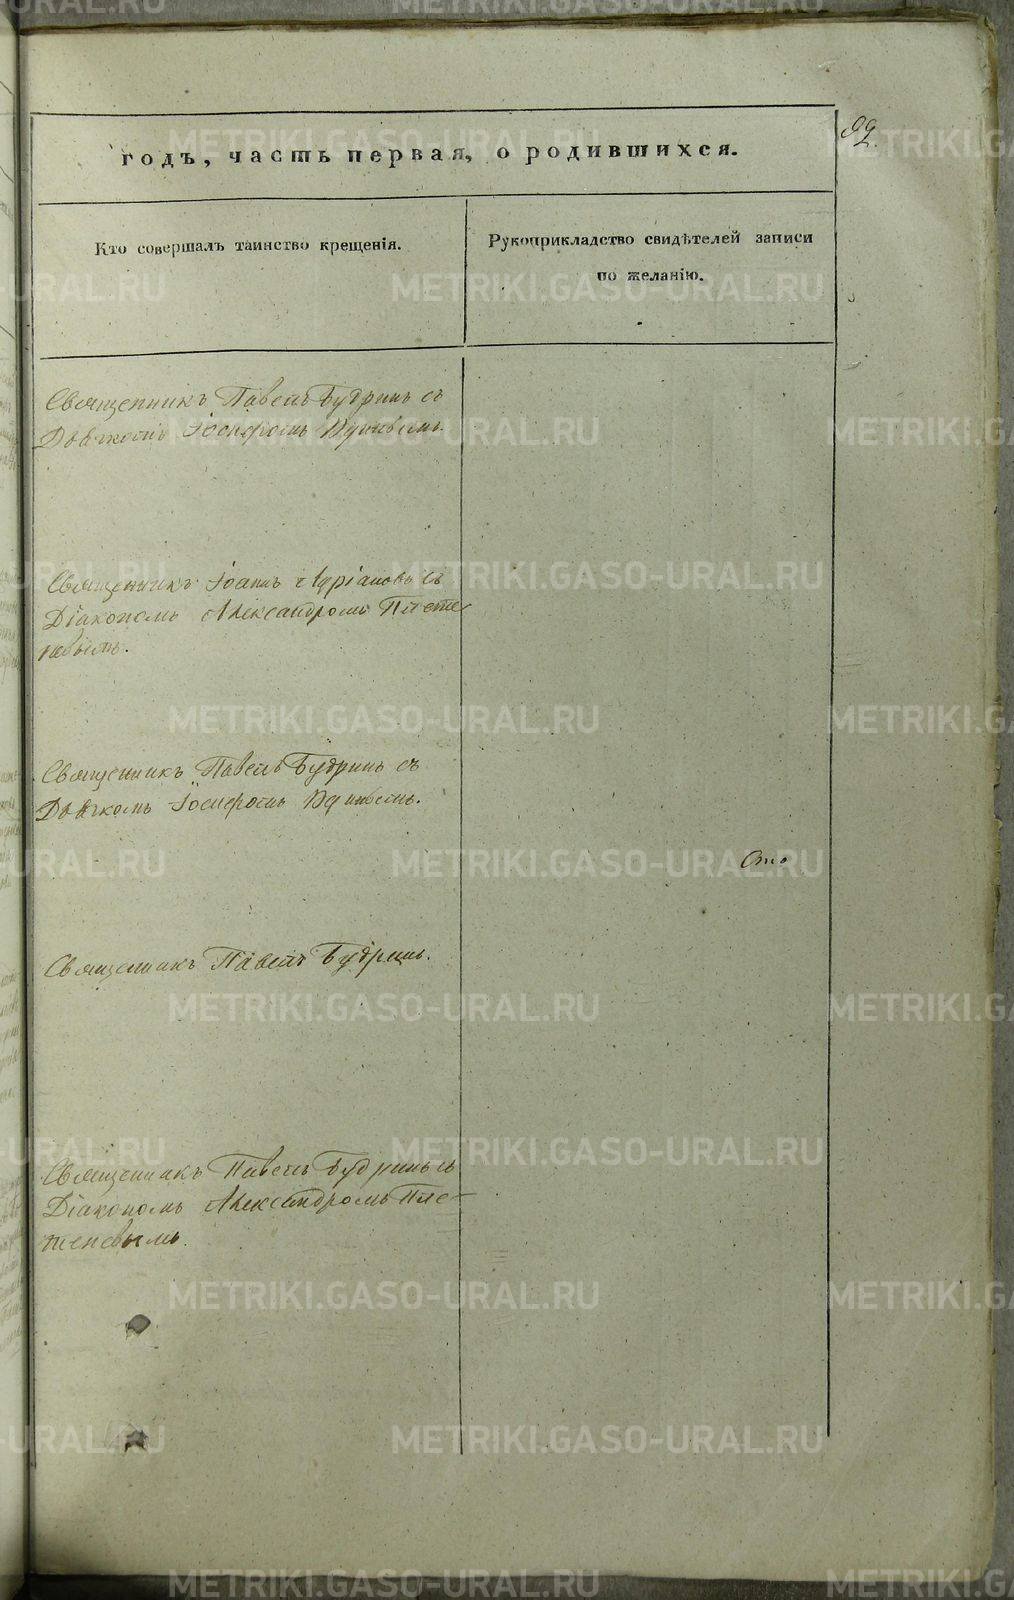 99.
годъ, часть первая, о родившихся.
Кто совершалъ таинство крещенія.
Рукоприкладство свидѣтелей записи
по желанію.
Священникъ Павелъ Будринъ съ
Дьячкомъ Іосифомъ
Священникъ Іоаннъ Адріановъ съ
Діакономъ Александромъ Плете
невымъ.
Священникъ Павелъ Будринъ съ
Дьячкомъ Іосифомъ
Священникъ Павелъ Будринъ.
Священникъ Павелъ Будринъ съ
Діакономъ Александромъ Пле-
теневымъ.
METRIKI.GASO-URAL.RU